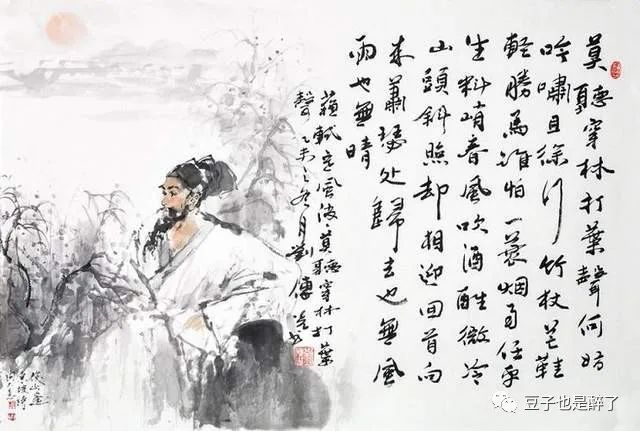 莫聽穿林打葉聲何妨
吟嘯且徐行竹杖芒鞋
輕勝馬誰怕一蓑烟雨任平
生料峭春風吹酒醒微冷
山頭斜照却相迎回首向
来蕭瑟处歸去也無風
雨也無晴
蘇軾定風波莫聽穿林打葉
聲乙未之冬月劉傳
豆子也是醉了